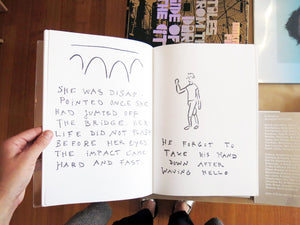 SHE WAS DISAP
POINTED ONCE SHE
HAD JUMPED OFF
THE BRIDGE HER
LIFE DID NOT FLASH
BEFORE HER EYES
THE IMPACT CAME
HARD AND FAST
HE FORGOT TO
TAKE HIS HAND
DOWN AFTER
WAVING HELLO